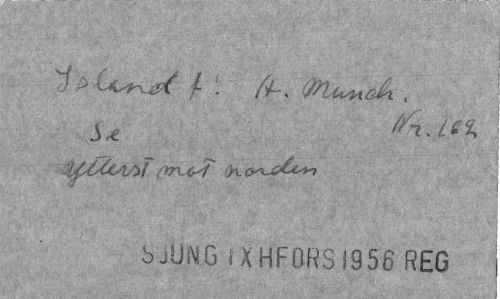 Island f! H. Munch.
Nr. 169
Se
ytterst mot norden
SJUNG IX HFORS 1956 REG